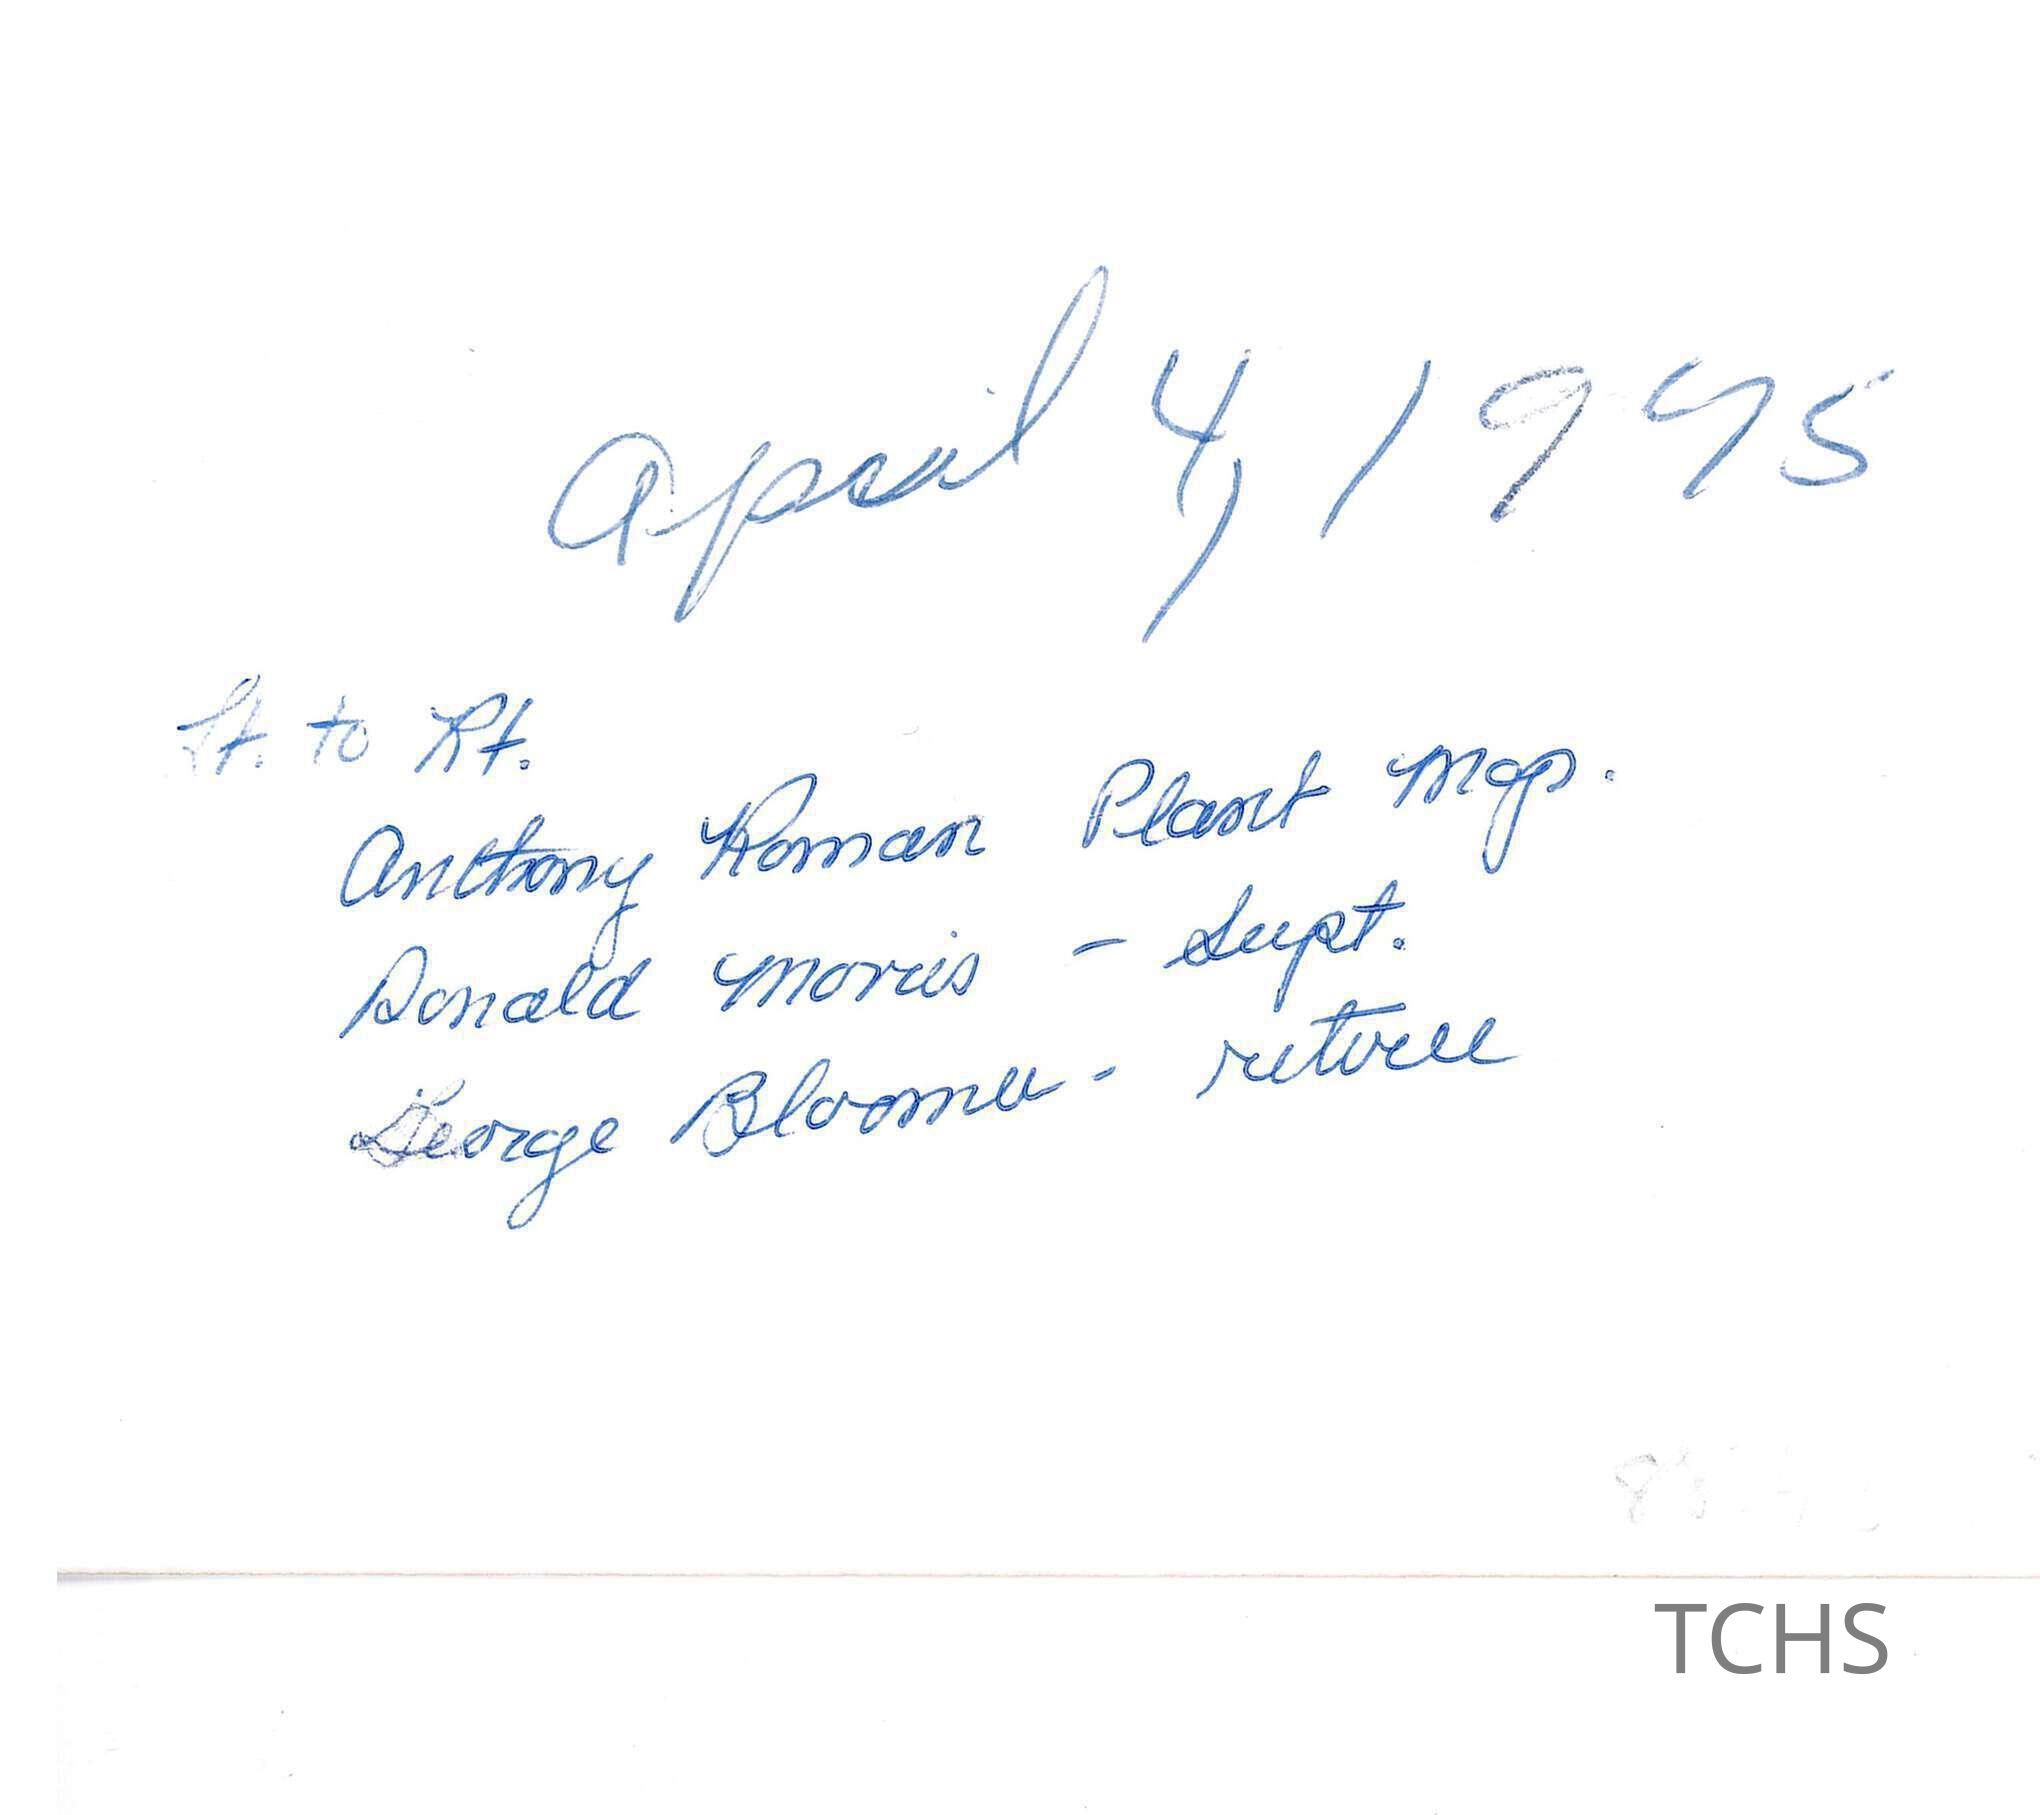 April 4, 1975
Lt. to Rt.
Anthony Roman Plant Mgr.
Donald Morris - Supt.
George Bloomer - retiree
TCHS